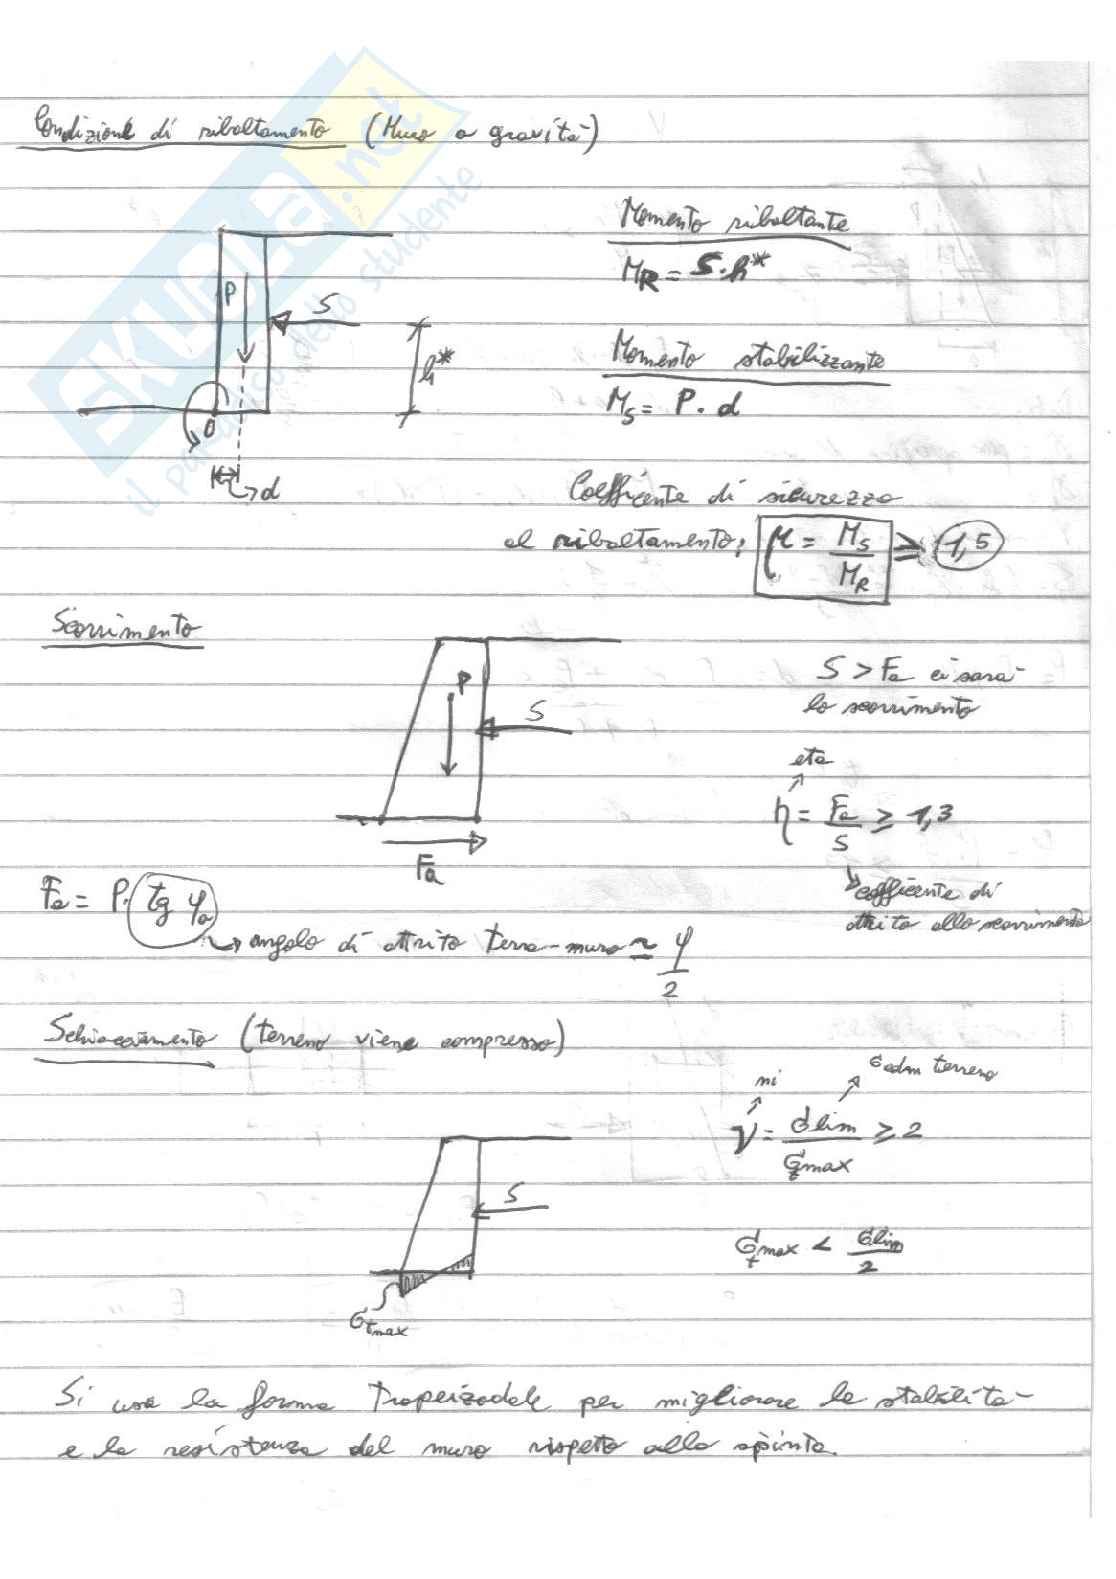 Condizione di ribaltamento (Muro a gravità)
Momento ribaltante
MR = S·h*
P
S
h*
Momento stabilizzante
MS = P·d
O
d
Coefficente di sicurezza
al ribaltamento: μ = MS/MR ≥ 1,5
Scorrimento
P
S
Fa
S > Fa ci sarà
lo scorrimento
eta
η = Fa/S ≥ 1,3
cofficente di
attrito allo scorrimento
Fa = P· tg φa
angolo di attrito terra-muro ≃ φ/2
Schiacciamento (terreno viene compresso)
σadm terreno
ni
ν = σlim/σtmax ≥ 2
S
σtmax < σlim/2
σtmax
Si usa la forma trapeizodale per migliorare la stabilità
e la resistenza del muro rispetto alla spinta.
SKUOLA.net
il paradiso dello studente